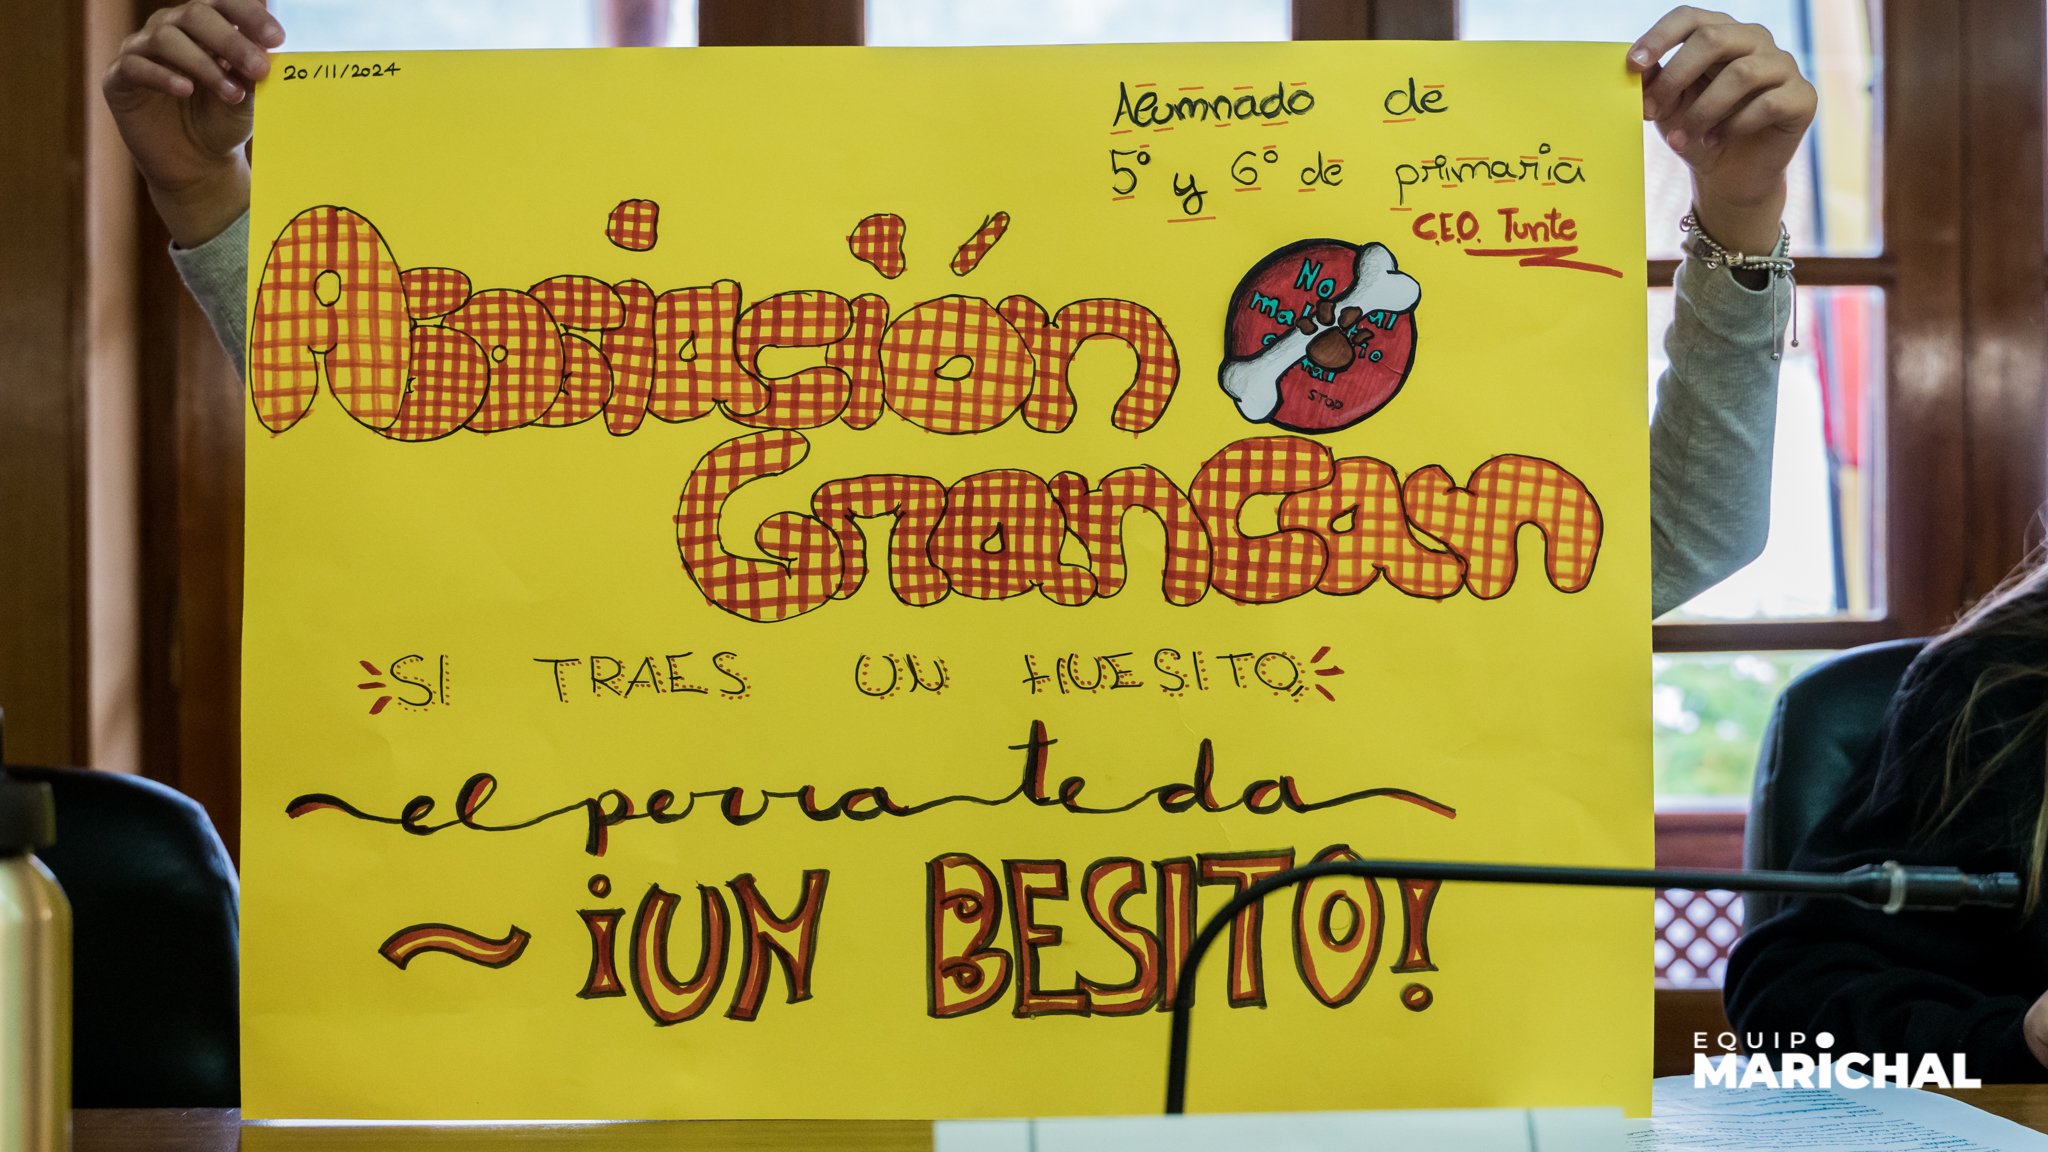 20/11/2024
Alumnado de
5º y 6º de primaria
C.E.O. Tunte
Asociación
No
mal al
STOP
GranCan
SI TRAES UN HUESITO,
el perro te da
~ ¡UN BESITO!
EQUIPO
MARICHAL